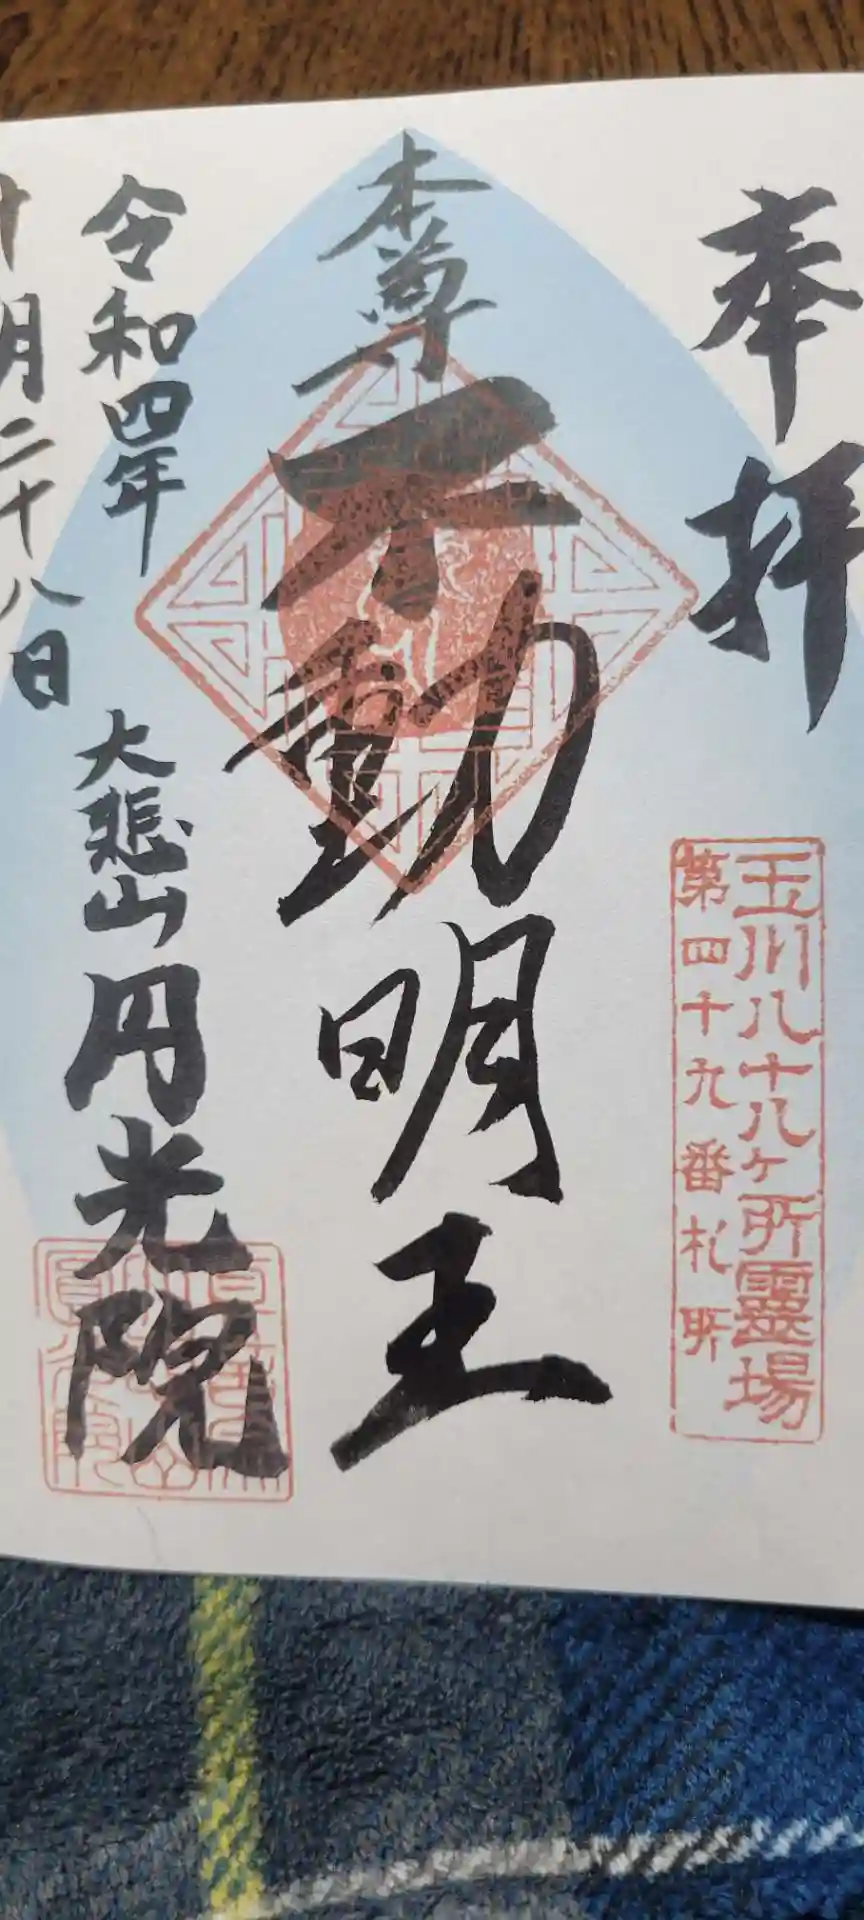 奉拝
玉川八十八ヶ所霊場
第四十九番札所
本尊
不動明王
令和四年
十月二十八日
大悲山円光院